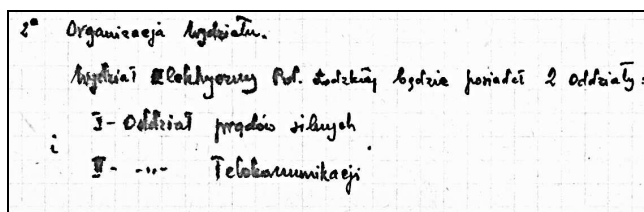 2° Organizacja Wydziału.
Wydział Elektryczny Pol. Łódzkiej będzie posiadał 2 oddziały:
I - Oddział prądów silnych
i
II - -"- Telekomunikacji